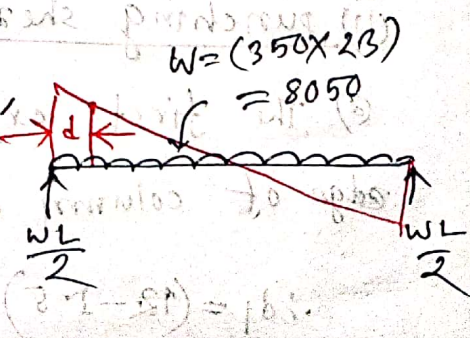 W = (350 × 23)
= 8050
d
WL
2
WL
2